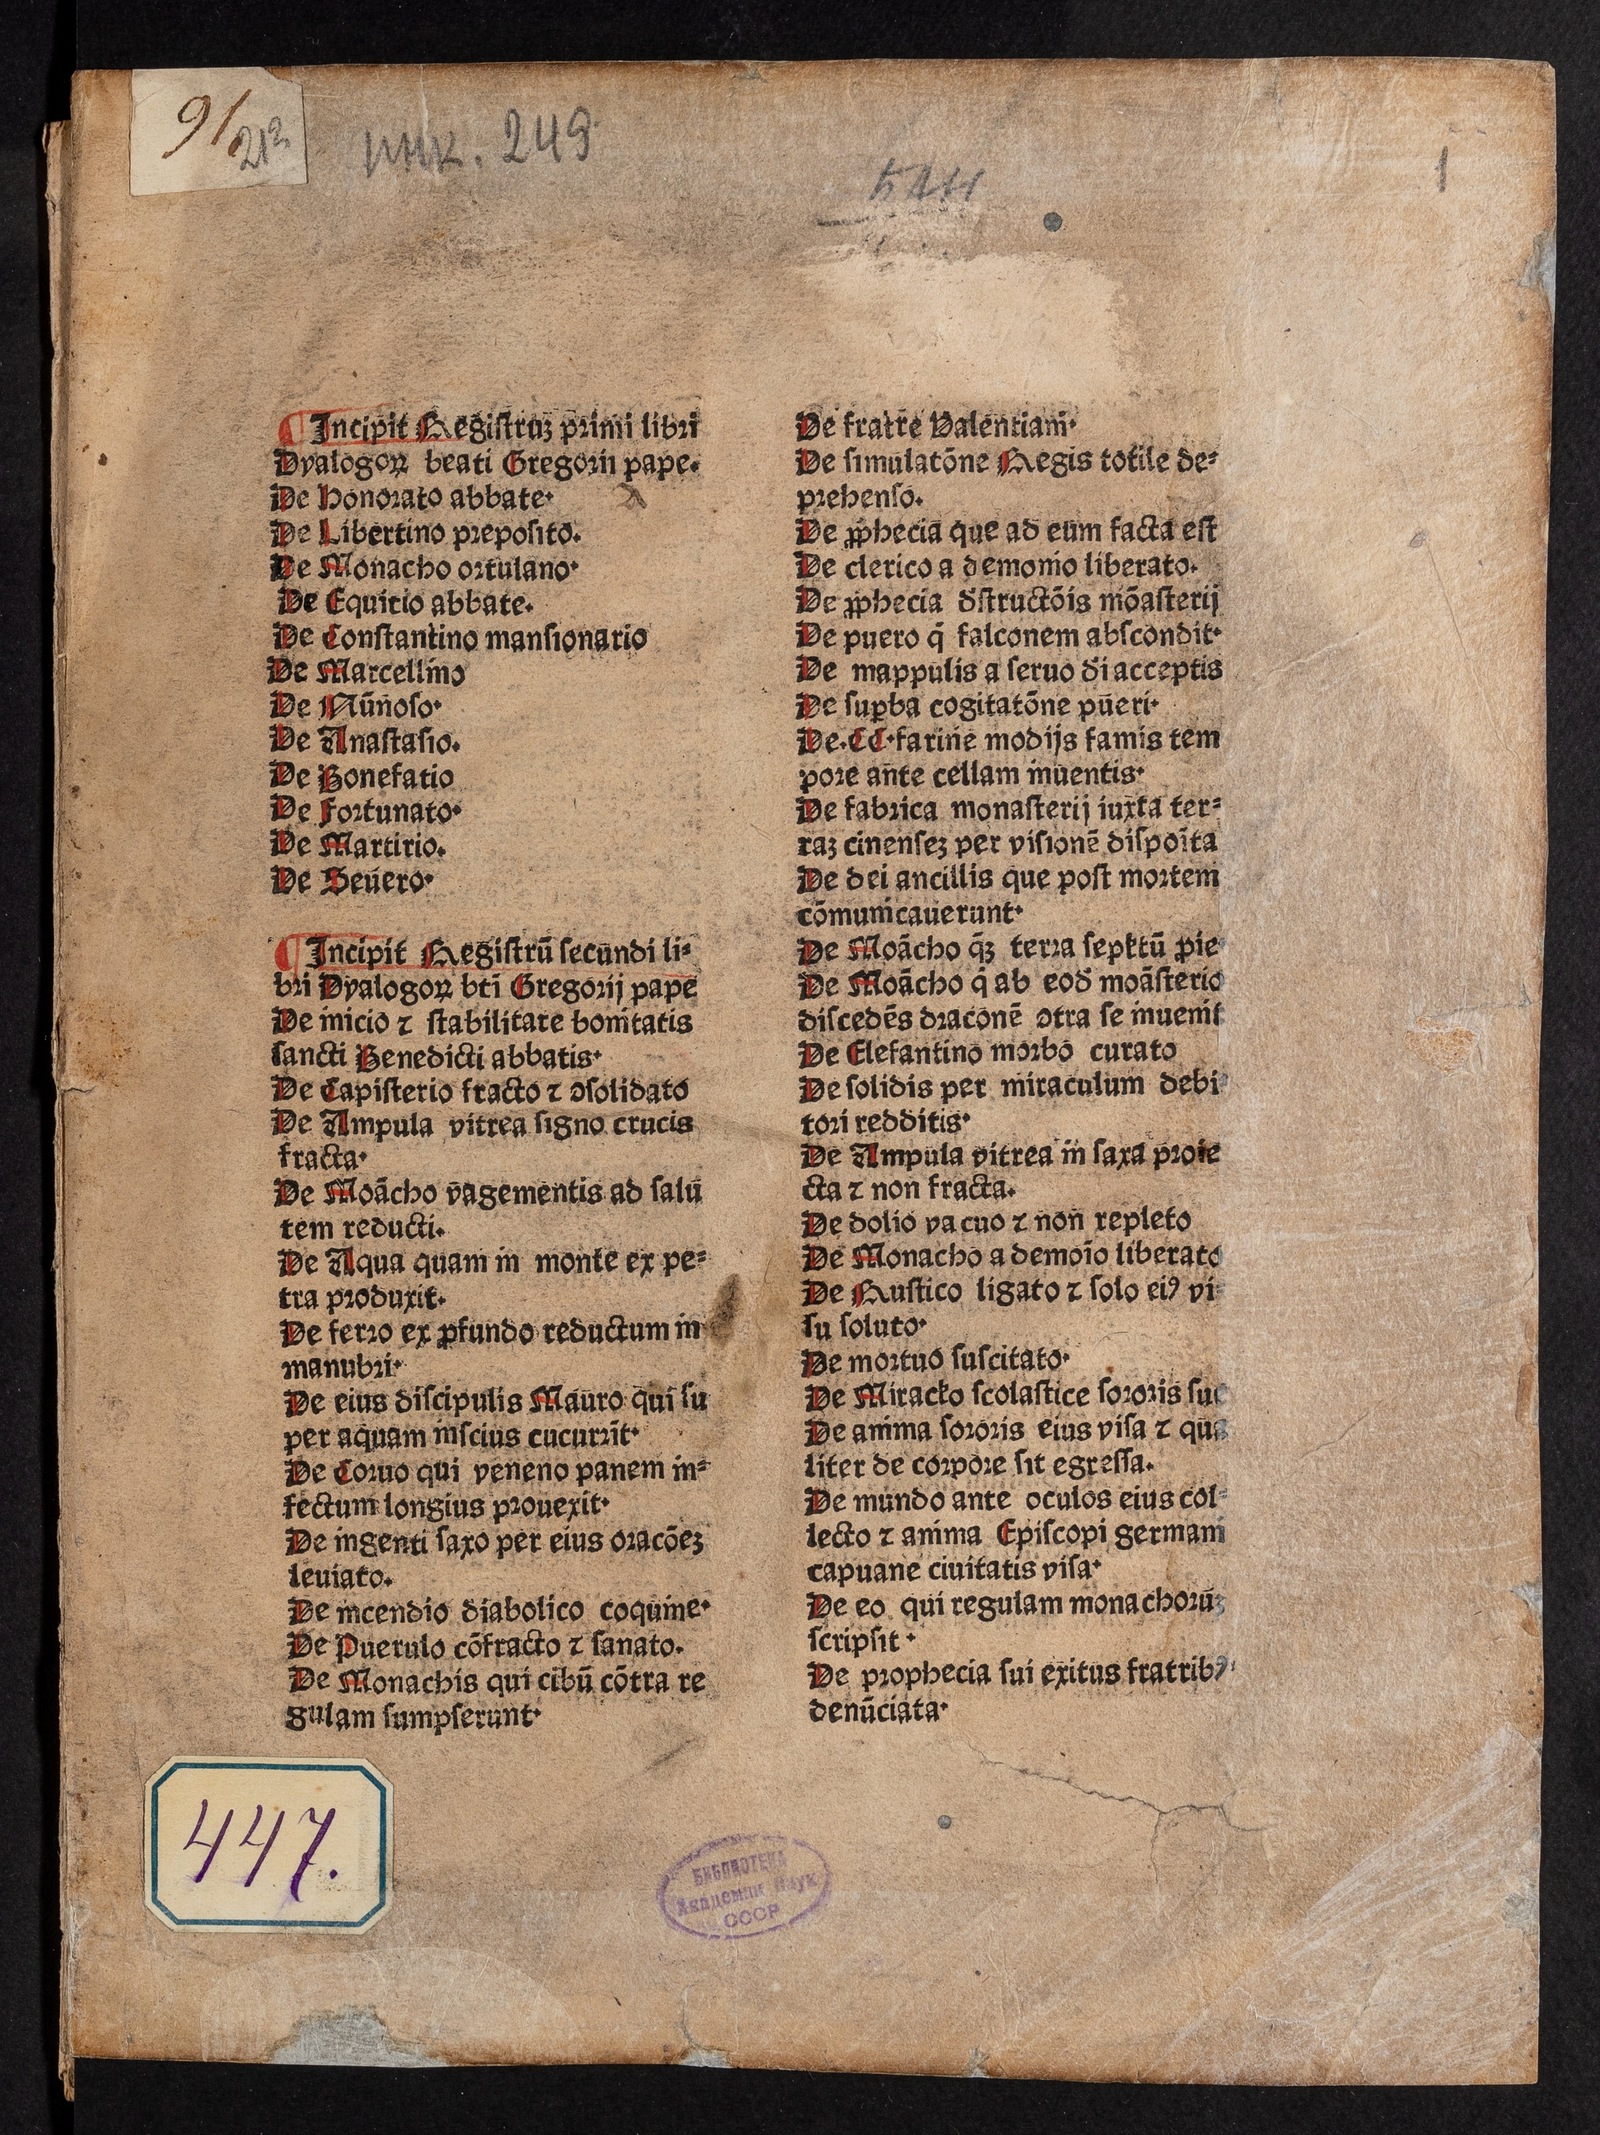 91
212
инк. 249
БАН
1
¶ Incipit Registruꝫ primi libri
Dyalogoꝝ beati Gregorii pape.
De honorato abbate·
De Libertino preposito.
De Monacho ortulano·
De Equitio abbate.
De Constantino mansionario
De Marcellino
De Nūnoso·
De Anastasio.
De Bonefatio
De Fortunato·
De Martirio.
De Seuero·
¶ Incipit Registrū secundi li⸗
bri Dyalogoꝝ bti Gregorij pape
De inicio ⁊ stabilitate bonitatis
sancti Benedicti abbatis·
De Capisterio fracto ⁊ ꝯsolidato
De Ampula vitrea signo crucis
fracta·
De Moācho vagementis ad salu
tem reducti.
De Aqua quam in monte ex pe⸗
tra produxit.
De ferro ex ꝓfundo reductum in
manubri·
De eius discipulis Mauro qui su
per aquam inscius cucurrit·
De Coruo qui veneno panem in⸗
fectum longius prouexit·
De ingenti saxo per eius oracōeꝫ
leuiato.
De incendio diabolico coquine·
De Puerulo cōfracto ⁊ sanato.
De Monachis qui cibū cōtra re
gulam sumpserunt·
De fratre Valentiani·
De simulatōne Regis totile de⸗
prehenso.
De ꝓphecia que ad eum facta est
De clerico a demonio liberato.
De ꝓphecia dstructōis mōasterij
De puero q̄ falconem abscondit·
De mappulis a seruo di acceptis
De suꝑba cogitatōne pueri·
De·CC·farine modijs famis tem
pore ante cellam inuentis·
De fabrica monasterij iuxta ter⸗
raꝫ cinenseꝫ per visionē dispoīta
De dei ancillis que post mortem
cōmunicauerunt·
De Moācho q̄ꝫ terra sepltū ꝓie
De Moācho q̄ ab eod moāsterio
discedēs draconē ꝯtra se inuenit
De Elefantino morbo curato
De solidis per miraculum debi⸗
tori redditis·
De Ampula vitrea in saxa proie
cta ⁊ non fracta.
De dolio vacuo ⁊ non repleto
De Monacho a demoīo liberato
De Rustico ligato ⁊ solo eiꝰ vi⸗
su soluto·
De mortuo suscitato·
De Miraclo scolastice sororis sue
De anima sororis eius visa ⁊ qua
liter de corpore sit egressa.
De mundo ante oculos eius col⸗
lecto ⁊ anima Episcopi germani
capuane ciuitatis visa·
De eo qui regulam monachorūꝫ
scripsit·
De prophecia sui exitus fratribꝰ
denūciata·
447.
БИБЛИОТЕКА
Академии Наук
СССР